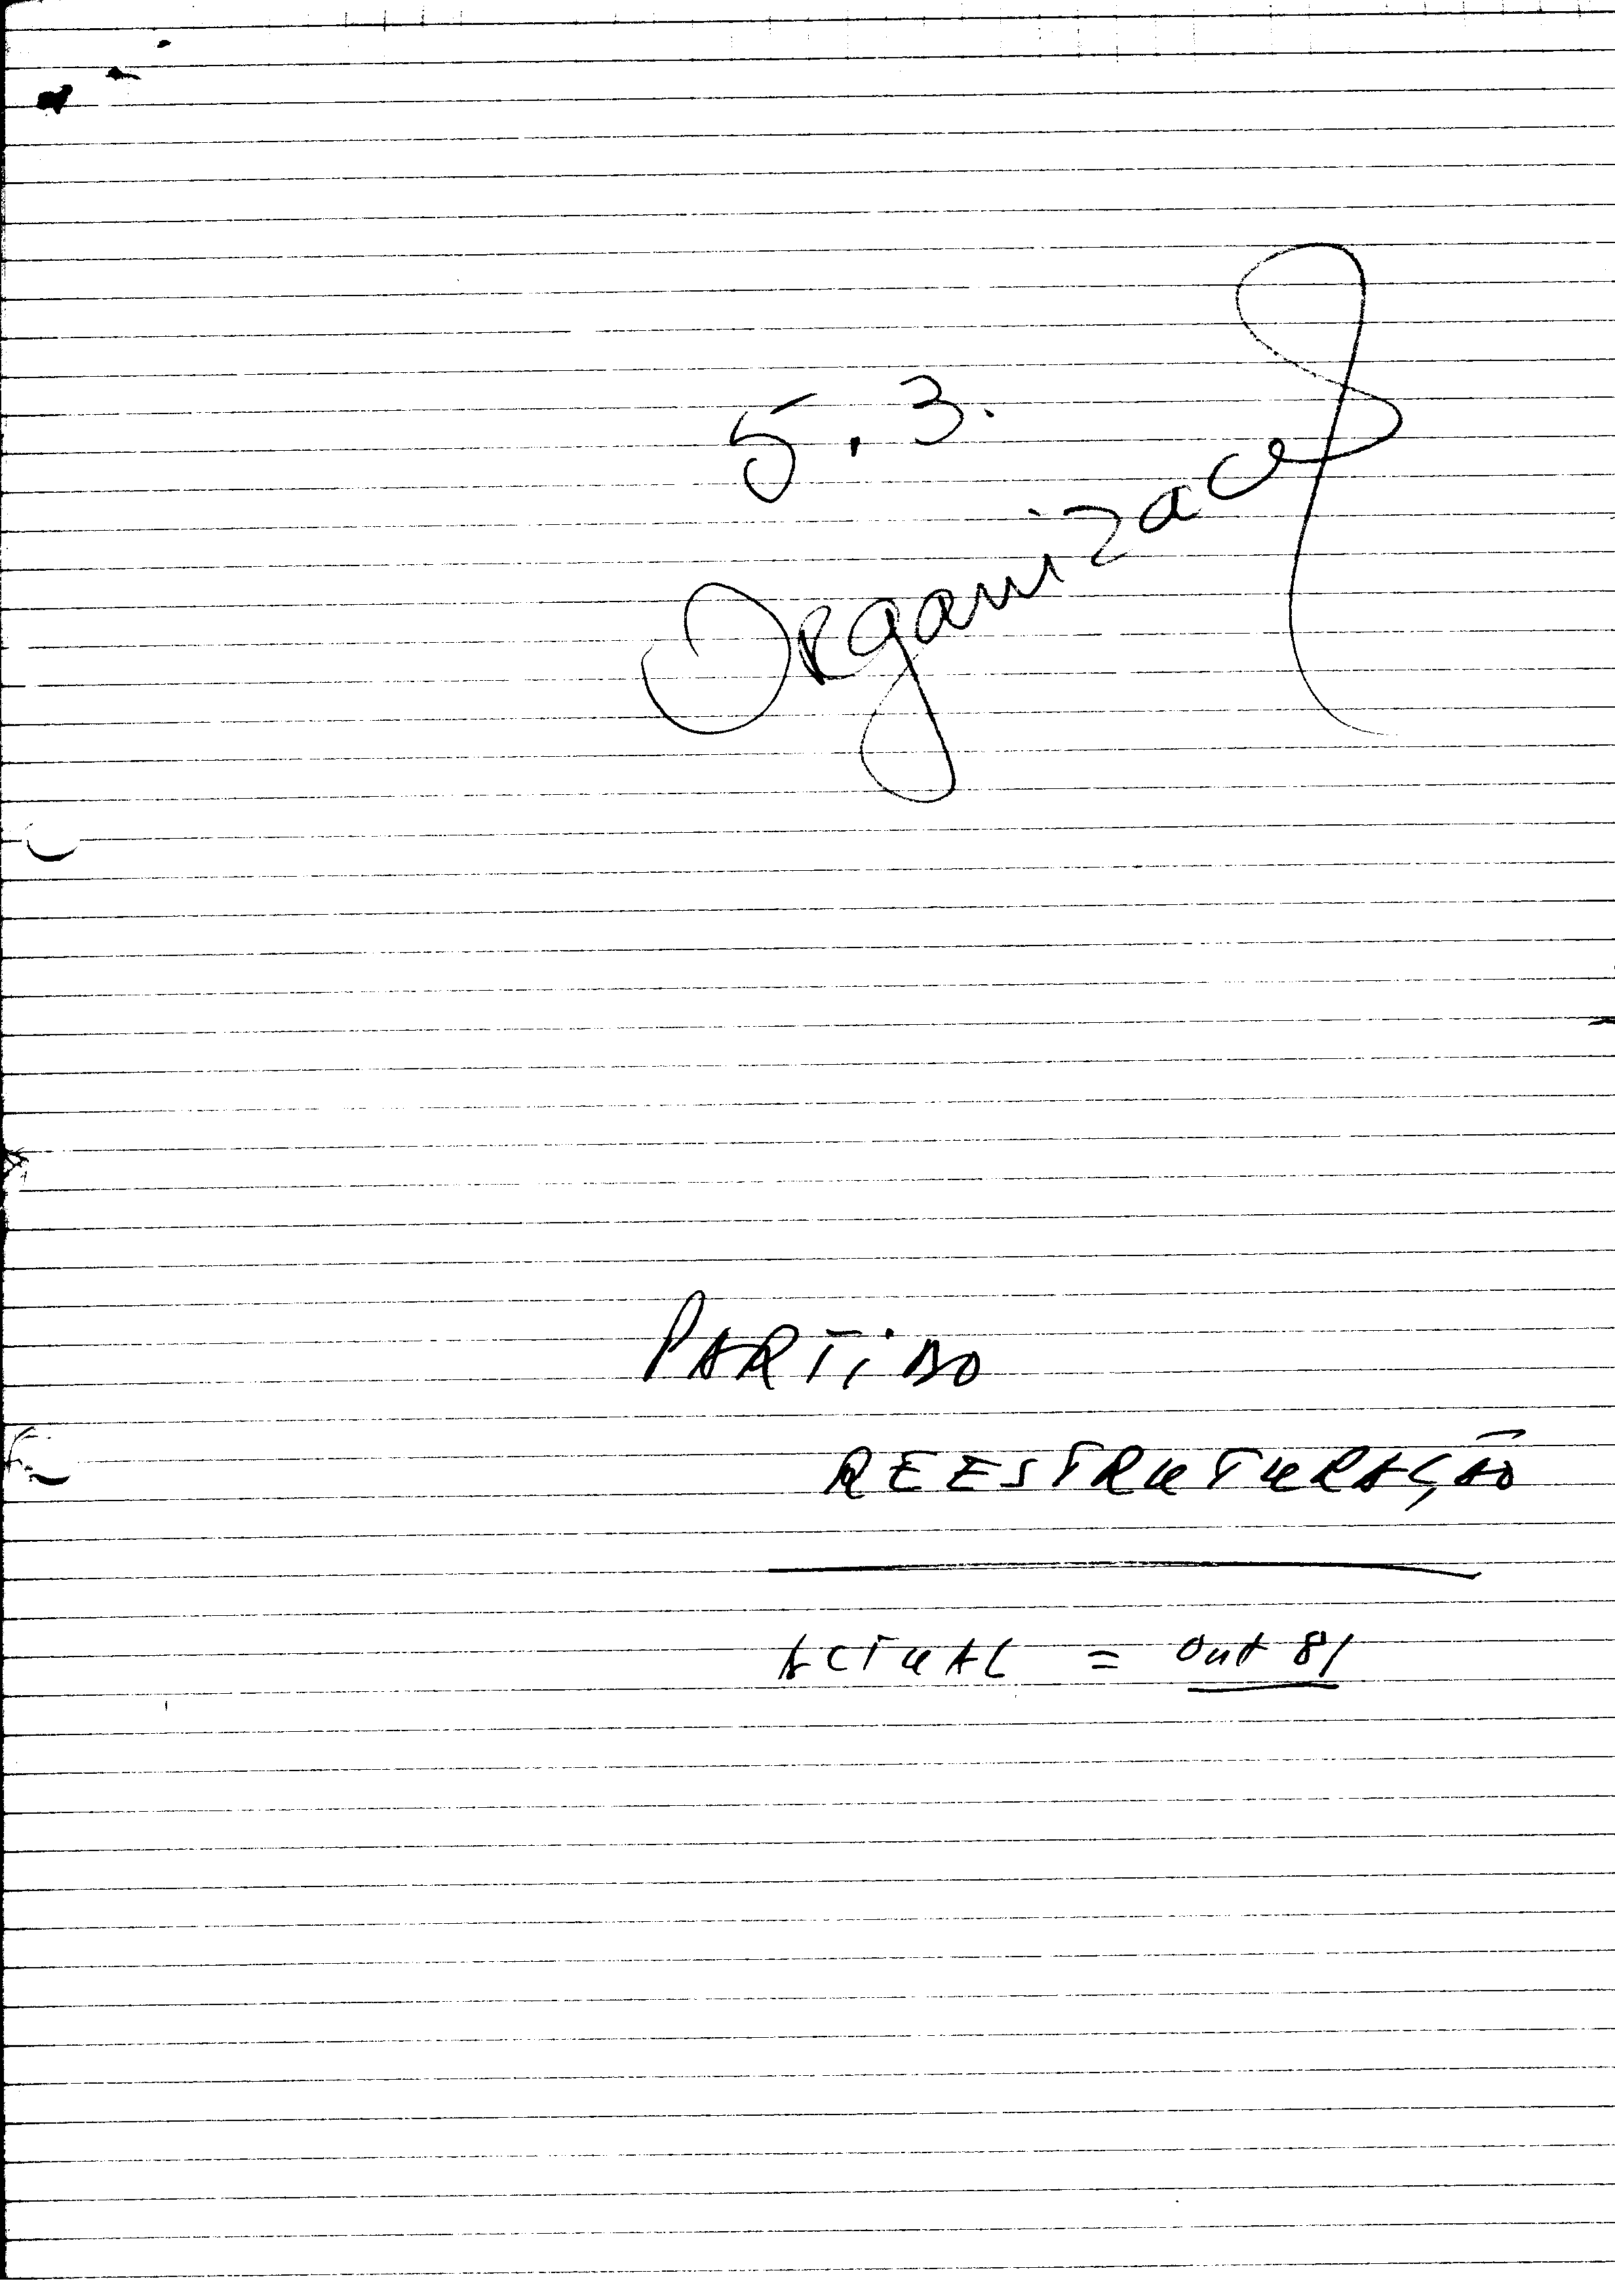 5.3.
Organizaç
PARTIDO
REESTRUTURAÇÃO
ACTUAL = Out 81